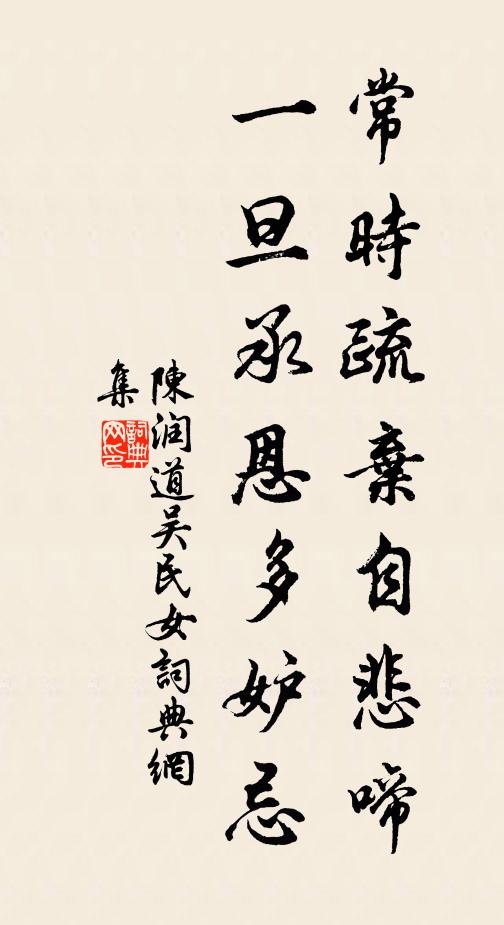 常時疏棄自悲啼
一旦承恩多妒忌
陳润道吴民女詞典網
集
詞典
网印